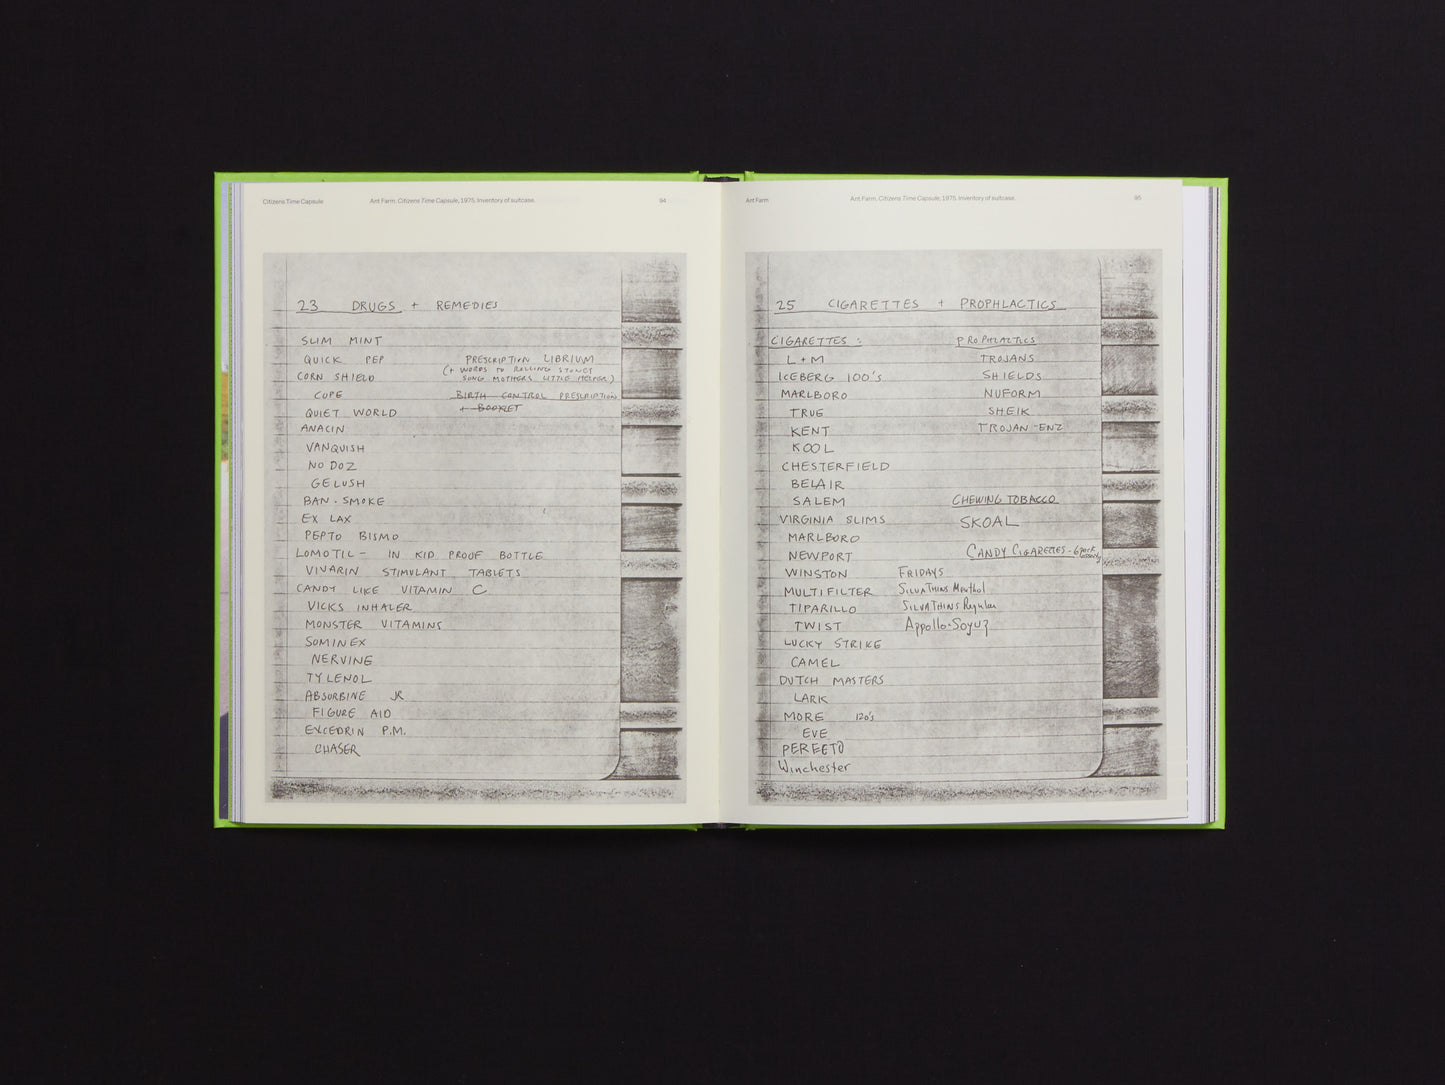 Citizens Time Capsule
Ant Farm. Citizens Time Capsule, 1975. Inventory of suitcase.
94
23 DRUGS + REMEDIES
SLIM MINT
QUICK PEP
CORN SHIELD
COPE
QUIET WORLD
ANACIN
VANQUISH
NO DOZ
GELUSH
BAN-SMOKE
EX LAX
PEPTO BISMO
LOMOTIL - IN KID PROOF BOTTLE
VIVARIN STIMULANT TABLETS
CANDY LIKE VITAMIN C
VICKS INHALER
MONSTER VITAMINS
SOMINEX
NERVINE
TYLENOL
ABSORBINE JR
FIGURE AID
EXCEDRIN P.M.
CHASER
PRESCRIPTION LIBRIUM
(+ WORDS TO ROLLING STONES
SONG MOTHERS LITTLE HELPER)
BIRTH CONTROL PRESCRIPTION
+ BOOKLET
Ant Farm
Ant Farm. Citizens Time Capsule, 1975. Inventory of suitcase.
95
25 CIGARETTES + PROPHLACTICS
CIGARETTES:
L+M
ICEBERG 100's
MARLBORO
TRUE
KENT
KOOL
CHESTERFIELD
BELAIR
SALEM
VIRGINIA SLIMS
MARLBORO
NEWPORT
WINSTON
MULTIFILTER
TIPARILLO
TWIST
LUCKY STRIKE
CAMEL
DUTCH MASTERS
LARK
MORE 120's
EVE
PERFECTO
Winchester
PROPHLACTICS
TROJANS
SHIELDS
NUFORM
SHEIK
TROJAN-ENZ
CHEWING TOBACCO
SKOAL
CANDY CIGARETTES - 6 pack
FRIDAYS
SILVATHINS Menthol
SILVATHINS Regular
Appollo-Soyuz